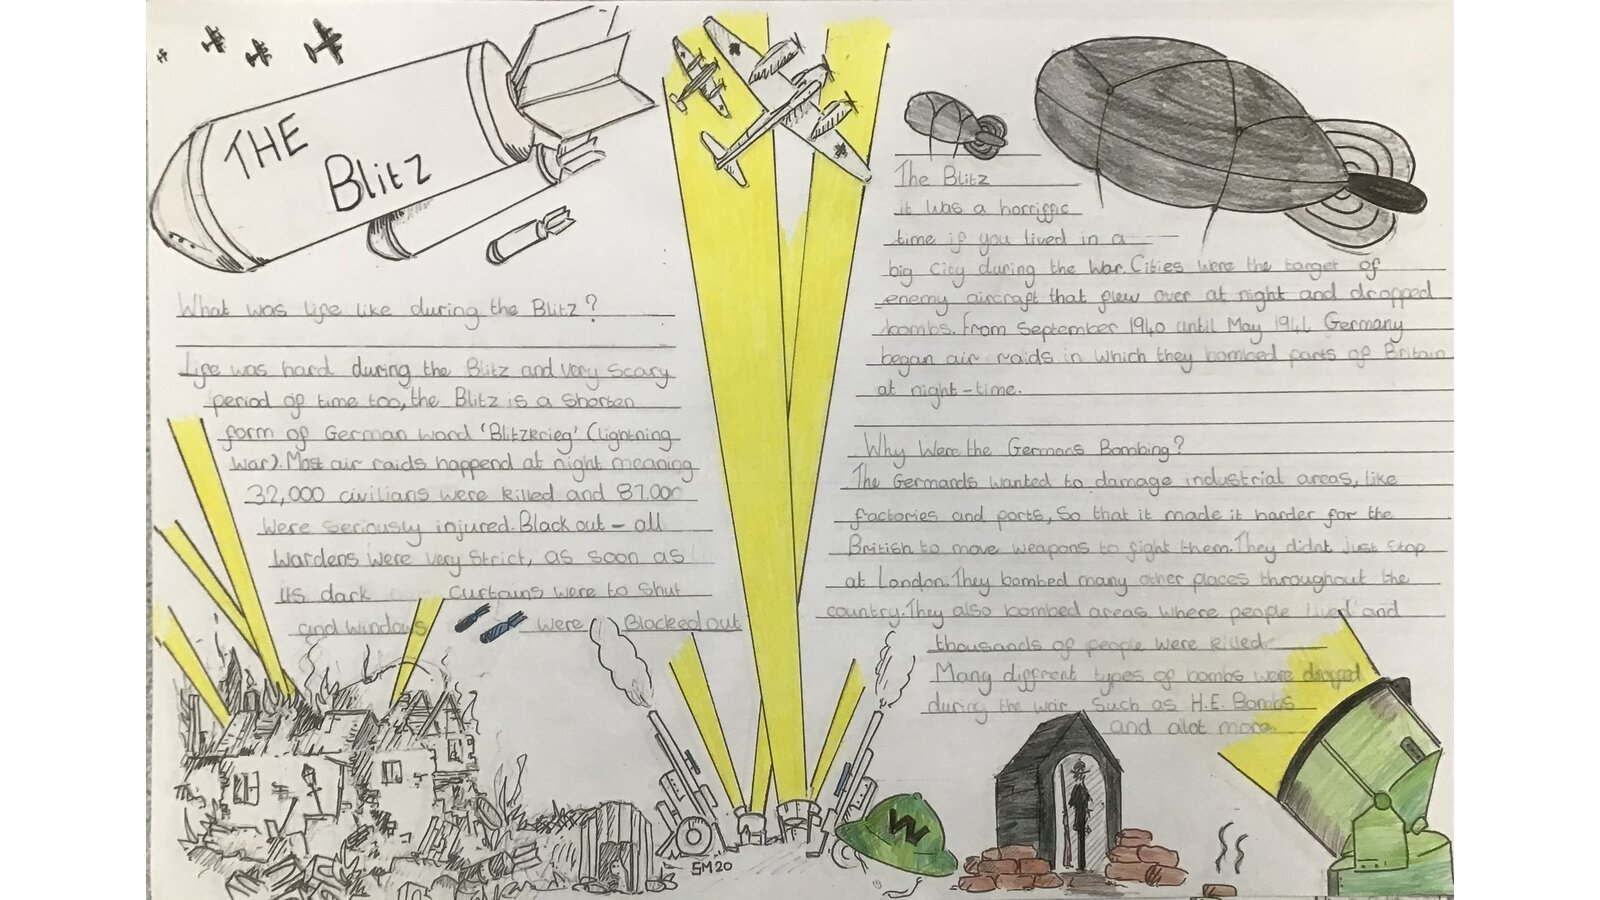 THE
Blitz
What was life like during the Blitz?
Life was hard during the Blitz and very scary
period of time too, the Blitz is a shorten
form of German word 'Blitzkrieg' (lightning
war). Most air raids happend at night meaning
32,000 civilians were killed and 87,000
were seriously injured. Black out - all
wardens were very strict, as soon as
its dark curtains were to shut
and windows were Blacked out
The Blitz
it was a horriffic
time if you lived in a
big city during the war. Cities were the target of
enemy aircraft that flew over at night and dropped
bombs. From September 1940 until May 1941 Germany
began air raids in which they bombed parts of Britain
at night-time.
Why Were the Germans Bombing?
The Germands wanted to damage industrial areas, like
factories and ports, so that it made it harder for the
British to move weapons to fight them. They didnt just stop
at London. They bombed many other places throughout the
country. They also bombed areas where people lived and
thousands of people were killed.
Many different types of bombs were dropped
during the war such as H.E. Bombs
and alot more.
W
SM20